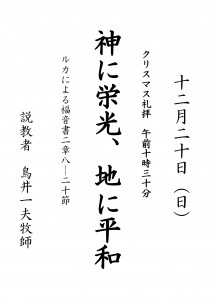 十二月二十日（日）
クリスマス礼拝　午前十時三十分
神に栄光、地に平和
ルカによる福音書二章八―二十節
説教者　鳥井一夫牧師